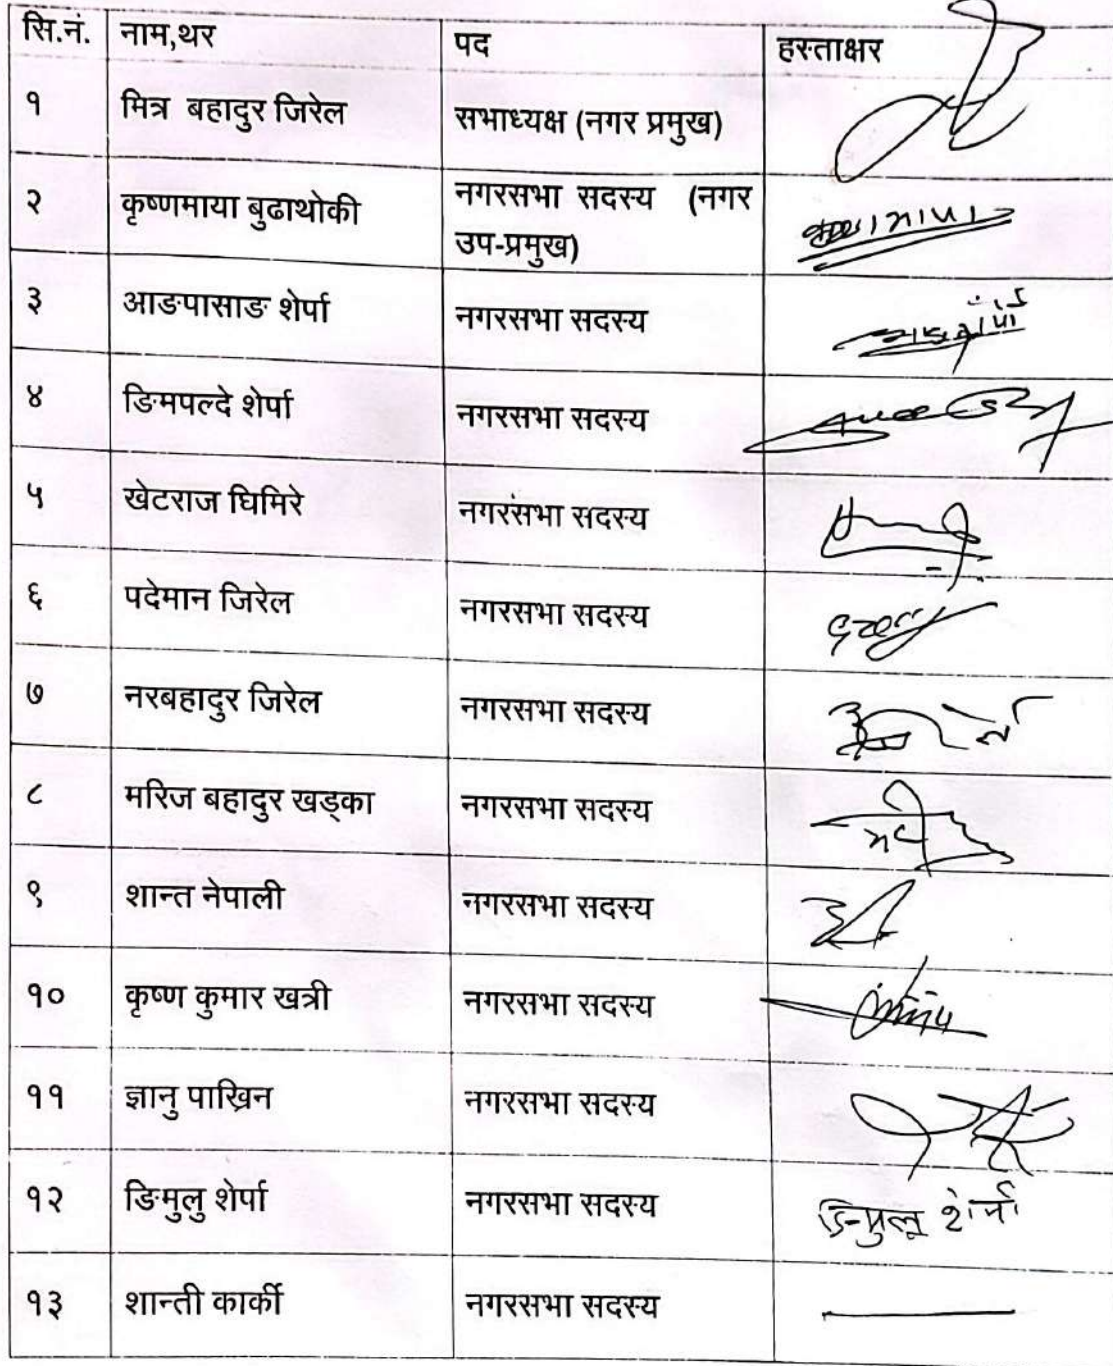 सि.नं. नाम,थर पद हस्ताक्षर
१ मित्र बहादुर जिरेल सभाध्यक्ष (नगर प्रमुख)
२ कृष्णमाया बुढाथोकी नगरसभा सदस्य (नगर
उप-प्रमुख)
३ आङपासाङ शेर्पा नगरसभा सदस्य
४ ङिमपल्दे शेर्पा नगरसभा सदस्य
५ खेटराज घिमिरे नगरसभा सदस्य
६ पदेमान जिरेल नगरसभा सदस्य
७ नरबहादुर जिरेल नगरसभा सदस्य
८ मरिज बहादुर खड्का नगरसभा सदस्य
९ शान्त नेपाली नगरसभा सदस्य
१० कृष्ण कुमार खत्री नगरसभा सदस्य
११ ज्ञानु पाख्रिन नगरसभा सदस्य
१२ ङिमुलु शेर्पा नगरसभा सदस्य ङिमुलू शेर्पा
१३ शान्ती कार्की नगरसभा सदस्य